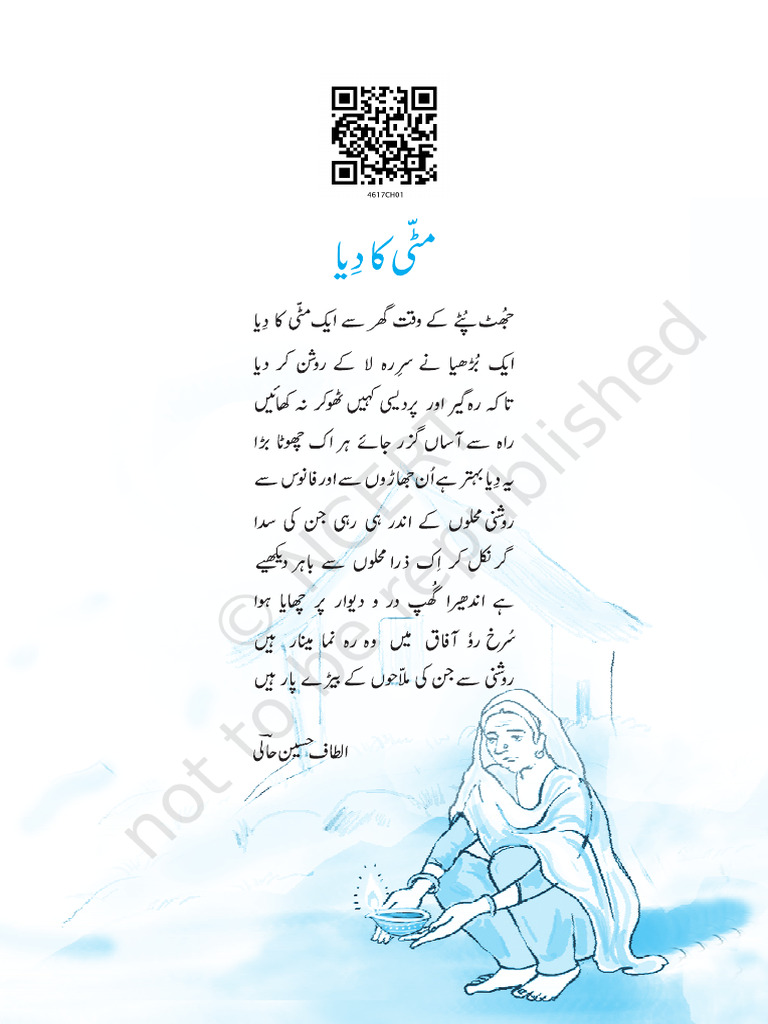 4617CH01
مٹّی کا دِیا
جھُٹ پُٹے کے وقت گھر سے ایک مٹّی کا دِیا
ایک بُڑھیا نے سرِ رہ لا کے روشن کر دیا
تا کہ رہ گیر اور پردیسی کہیں ٹھوکر نہ کھائیں
راہ سے آساں گزر جائے ہر اک چھوٹا بڑا
یہ دِیا بہتر ہے اُن جھاڑوں سے اور فانوس سے
روشنی محلوں کے اندر ہی رہی جن کی سدا
گر نکل کر اِک ذرا محلوں سے باہر دیکھیے
ہے اندھیرا گھُپ در و دیوار پر چھایا ہوا
سُرخ رؤ آفاق میں وہ رہ نما مینار ہیں
روشنی سے جن کی ملّاحوں کے بیڑے پار ہیں
الطاف حسین حالیؔ
© NCERT
not to be republished